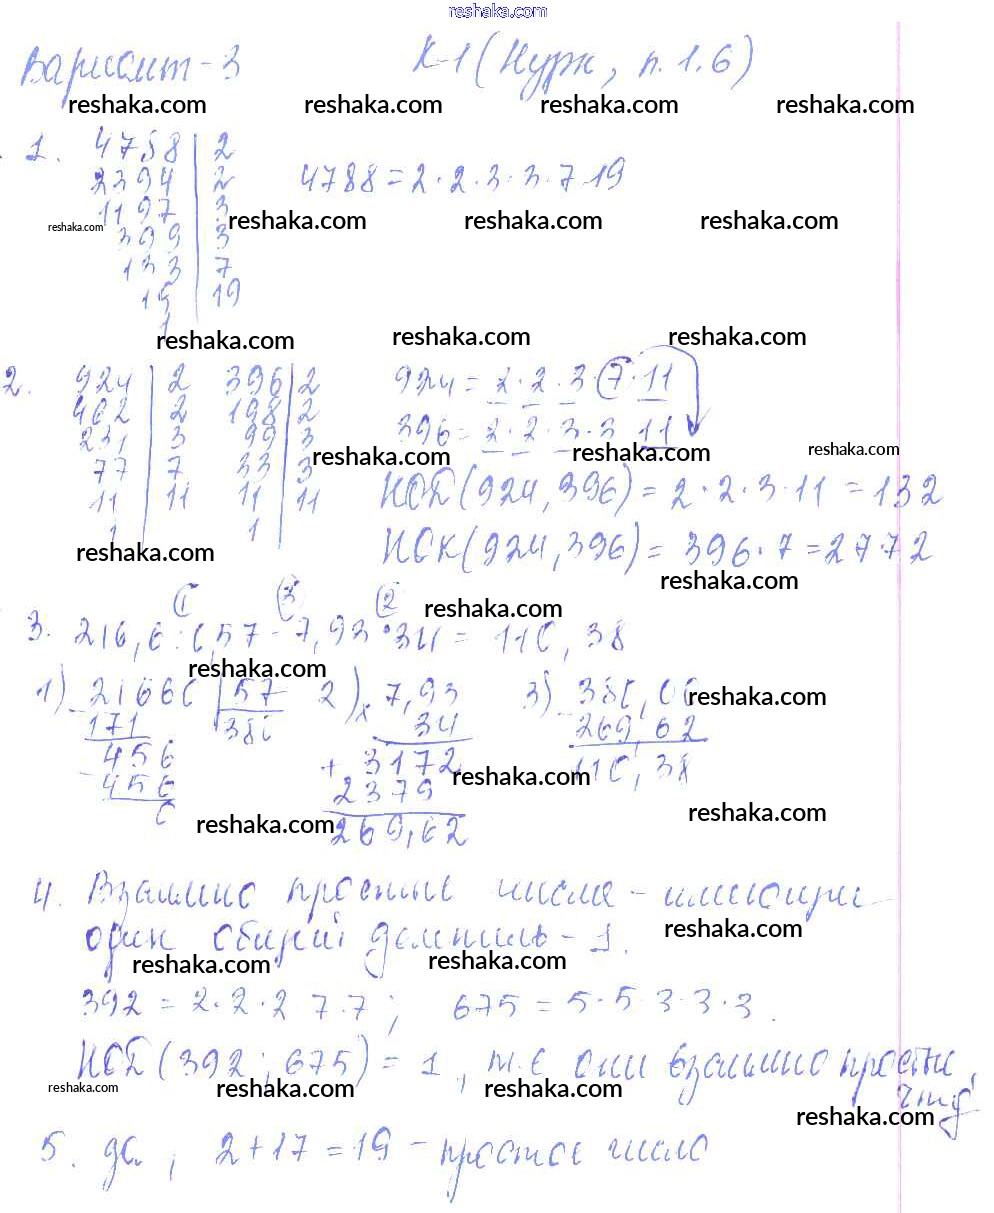 reshaka.com
Вариант-3 К-1 (Нурк, п. 1.6)
reshaka.com reshaka.com reshaka.com reshaka.com
1. 4788 | 2
2394 | 2 4788 = 2·2·3·3·7·19
1197 | 3
reshaka.com reshaka.com reshaka.com reshaka.com
399 | 3
133 | 7
19 | 19
1
reshaka.com reshaka.com reshaka.com
2. 924 | 2 396 | 2 924 = 2·2·3·7·11
462 | 2 198 | 2 396 = 2·2·3·3 11
231 | 3 99 | 3
reshaka.com reshaka.com reshaka.com
77 | 7 33 | 3 НОД (924, 396) = 2·2·3·11 = 132
11 | 11 11 | 11
1 1 НОК (924, 396) = 396·7 = 2772
reshaka.com reshaka.com
1 3 2
reshaka.com
3. 216,6 : 0,57 - 7,93·34 = 110,38
reshaka.com
1) 21660 | 57 2) 7,93 3) 380,00
reshaka.com
171 380 × 34 269,62
456 + 3172 110,38
reshaka.com
456 2379
0 269,62
reshaka.com reshaka.com
4. Взаимно простые числа - имеющие
один общий делитель - 1.
reshaka.com reshaka.com reshaka.com
392 = 2·2·2 7·7; 675 = 5·5·3·3·3.
НОД (392; 675) = 1, т.е они взаимно просты,
чтд
reshaka.com reshaka.com reshaka.com reshaka.com
reshaka.com
5. да, 2 + 17 = 19 - простое число